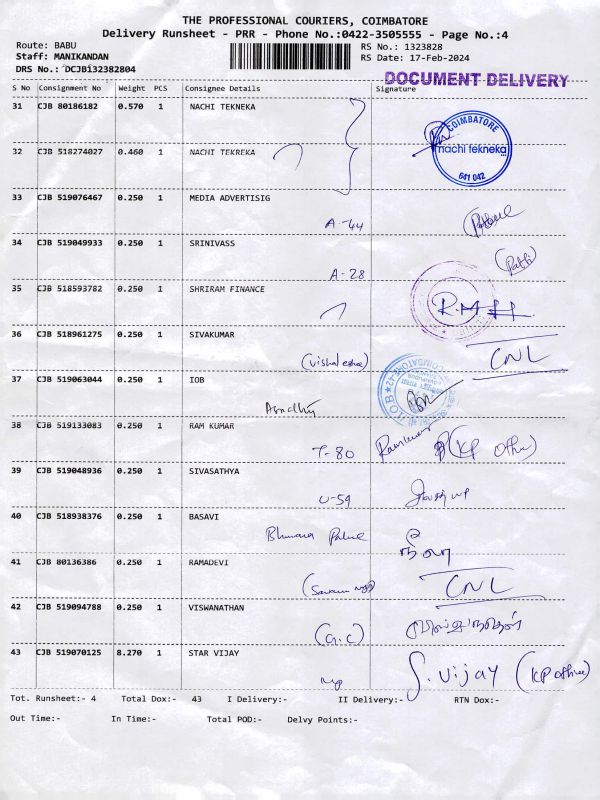 THE PROFESSIONAL COURIERS, COIMBATORE
Delivery Runsheet - PRR - Phone No.:0422-3505555 - Page No.:4
Route: BABU RS No.: 1323828
Staff: MANIKANDAN RS Date: 17-Feb-2024
DRS No.: DCJBi32382804
DOCUMENT DELIVERY
S No Consignment No Weight PCS Consignee Details Signature
31 CJB 80186182 0.570 1 NACHI TEKNEKA
COIMBATORE
nachi tekneka
641 042
32 CJB 518274027 0.460 1 NACHI TEKREKA
33 CJB 519076467 0.250 1 MEDIA ADVERTISIG
A-44
34 CJB 519049933 0.250 1 SRINIVASS
A-28 (Patti)
35 CJB 518593782 0.250 1 SHRIRAM FINANCE
36 CJB 518961275 0.250 1 SIVAKUMAR
CNL
37 CJB 519063044 0.250 1 IOB
38 CJB 519133083 0.250 1 RAM KUMAR
T-80 Ramkumar
39 CJB 518048936 0.250 1 SIVASATHYA
U-59
40 CJB 518938376 0.250 1 BASAVI
41 CJB 80136386 0.250 1 RAMADEVI
CNL
42 CJB 519094788 0.250 1 VISWANATHAN
(G.C)
43 CJB 519070125 8.270 1 STAR VIJAY
S. Vijay (KP Office)
Tot. Runsheet:- 4 Total Dox:- 43 I Delivery:- II Delivery:- RTN Dox:-
Out Time:- In Time:- Total POD:- Delvy Points:-